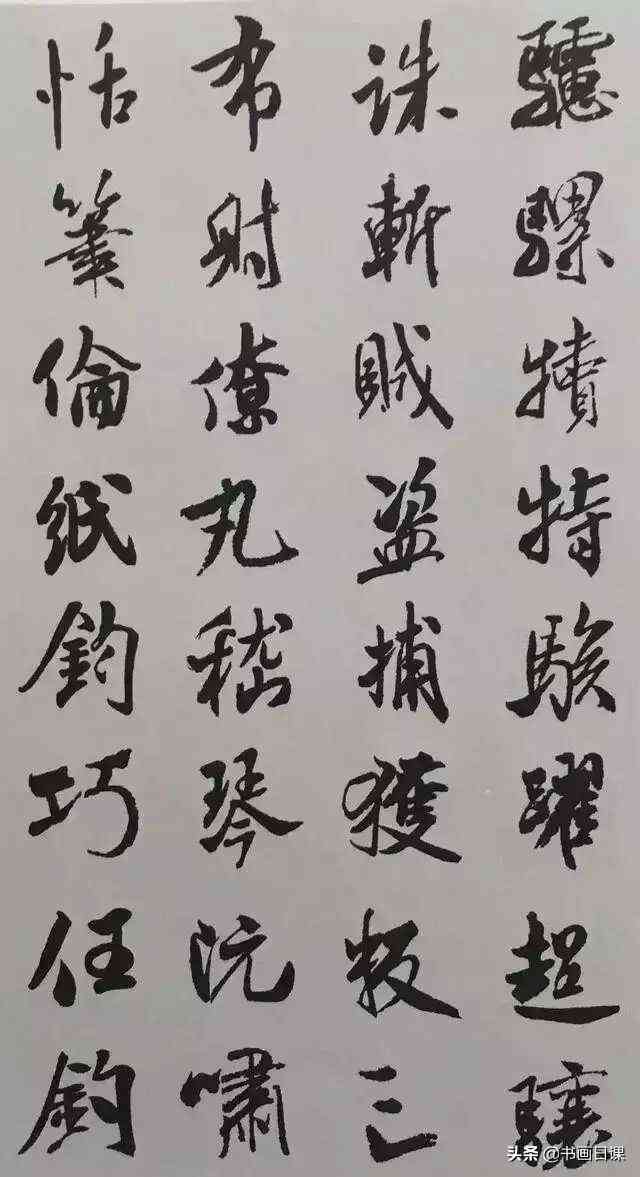 驢騾犢特駭躍超驤
誅斬賊盜捕獲叛亡
布射僚丸嵇琴阮嘯
恬筆倫紙鈞巧任釣
头条 @书画日课